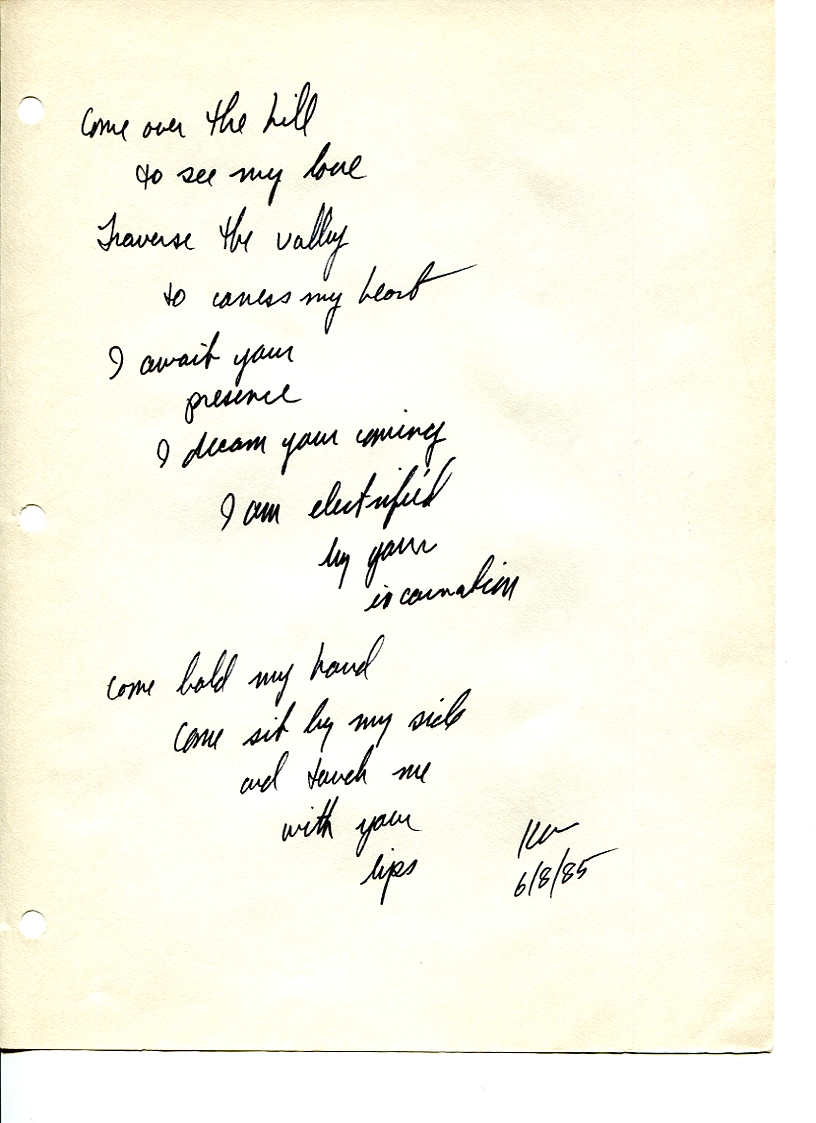 Come over the hill
to see my love
Traverse the valley
to caress my heart
I await your
presence
I dream your coming
I am electrified
by your
incarnation
come hold my hand
come sit by my side
and touch me
with your
lips
6/8/85